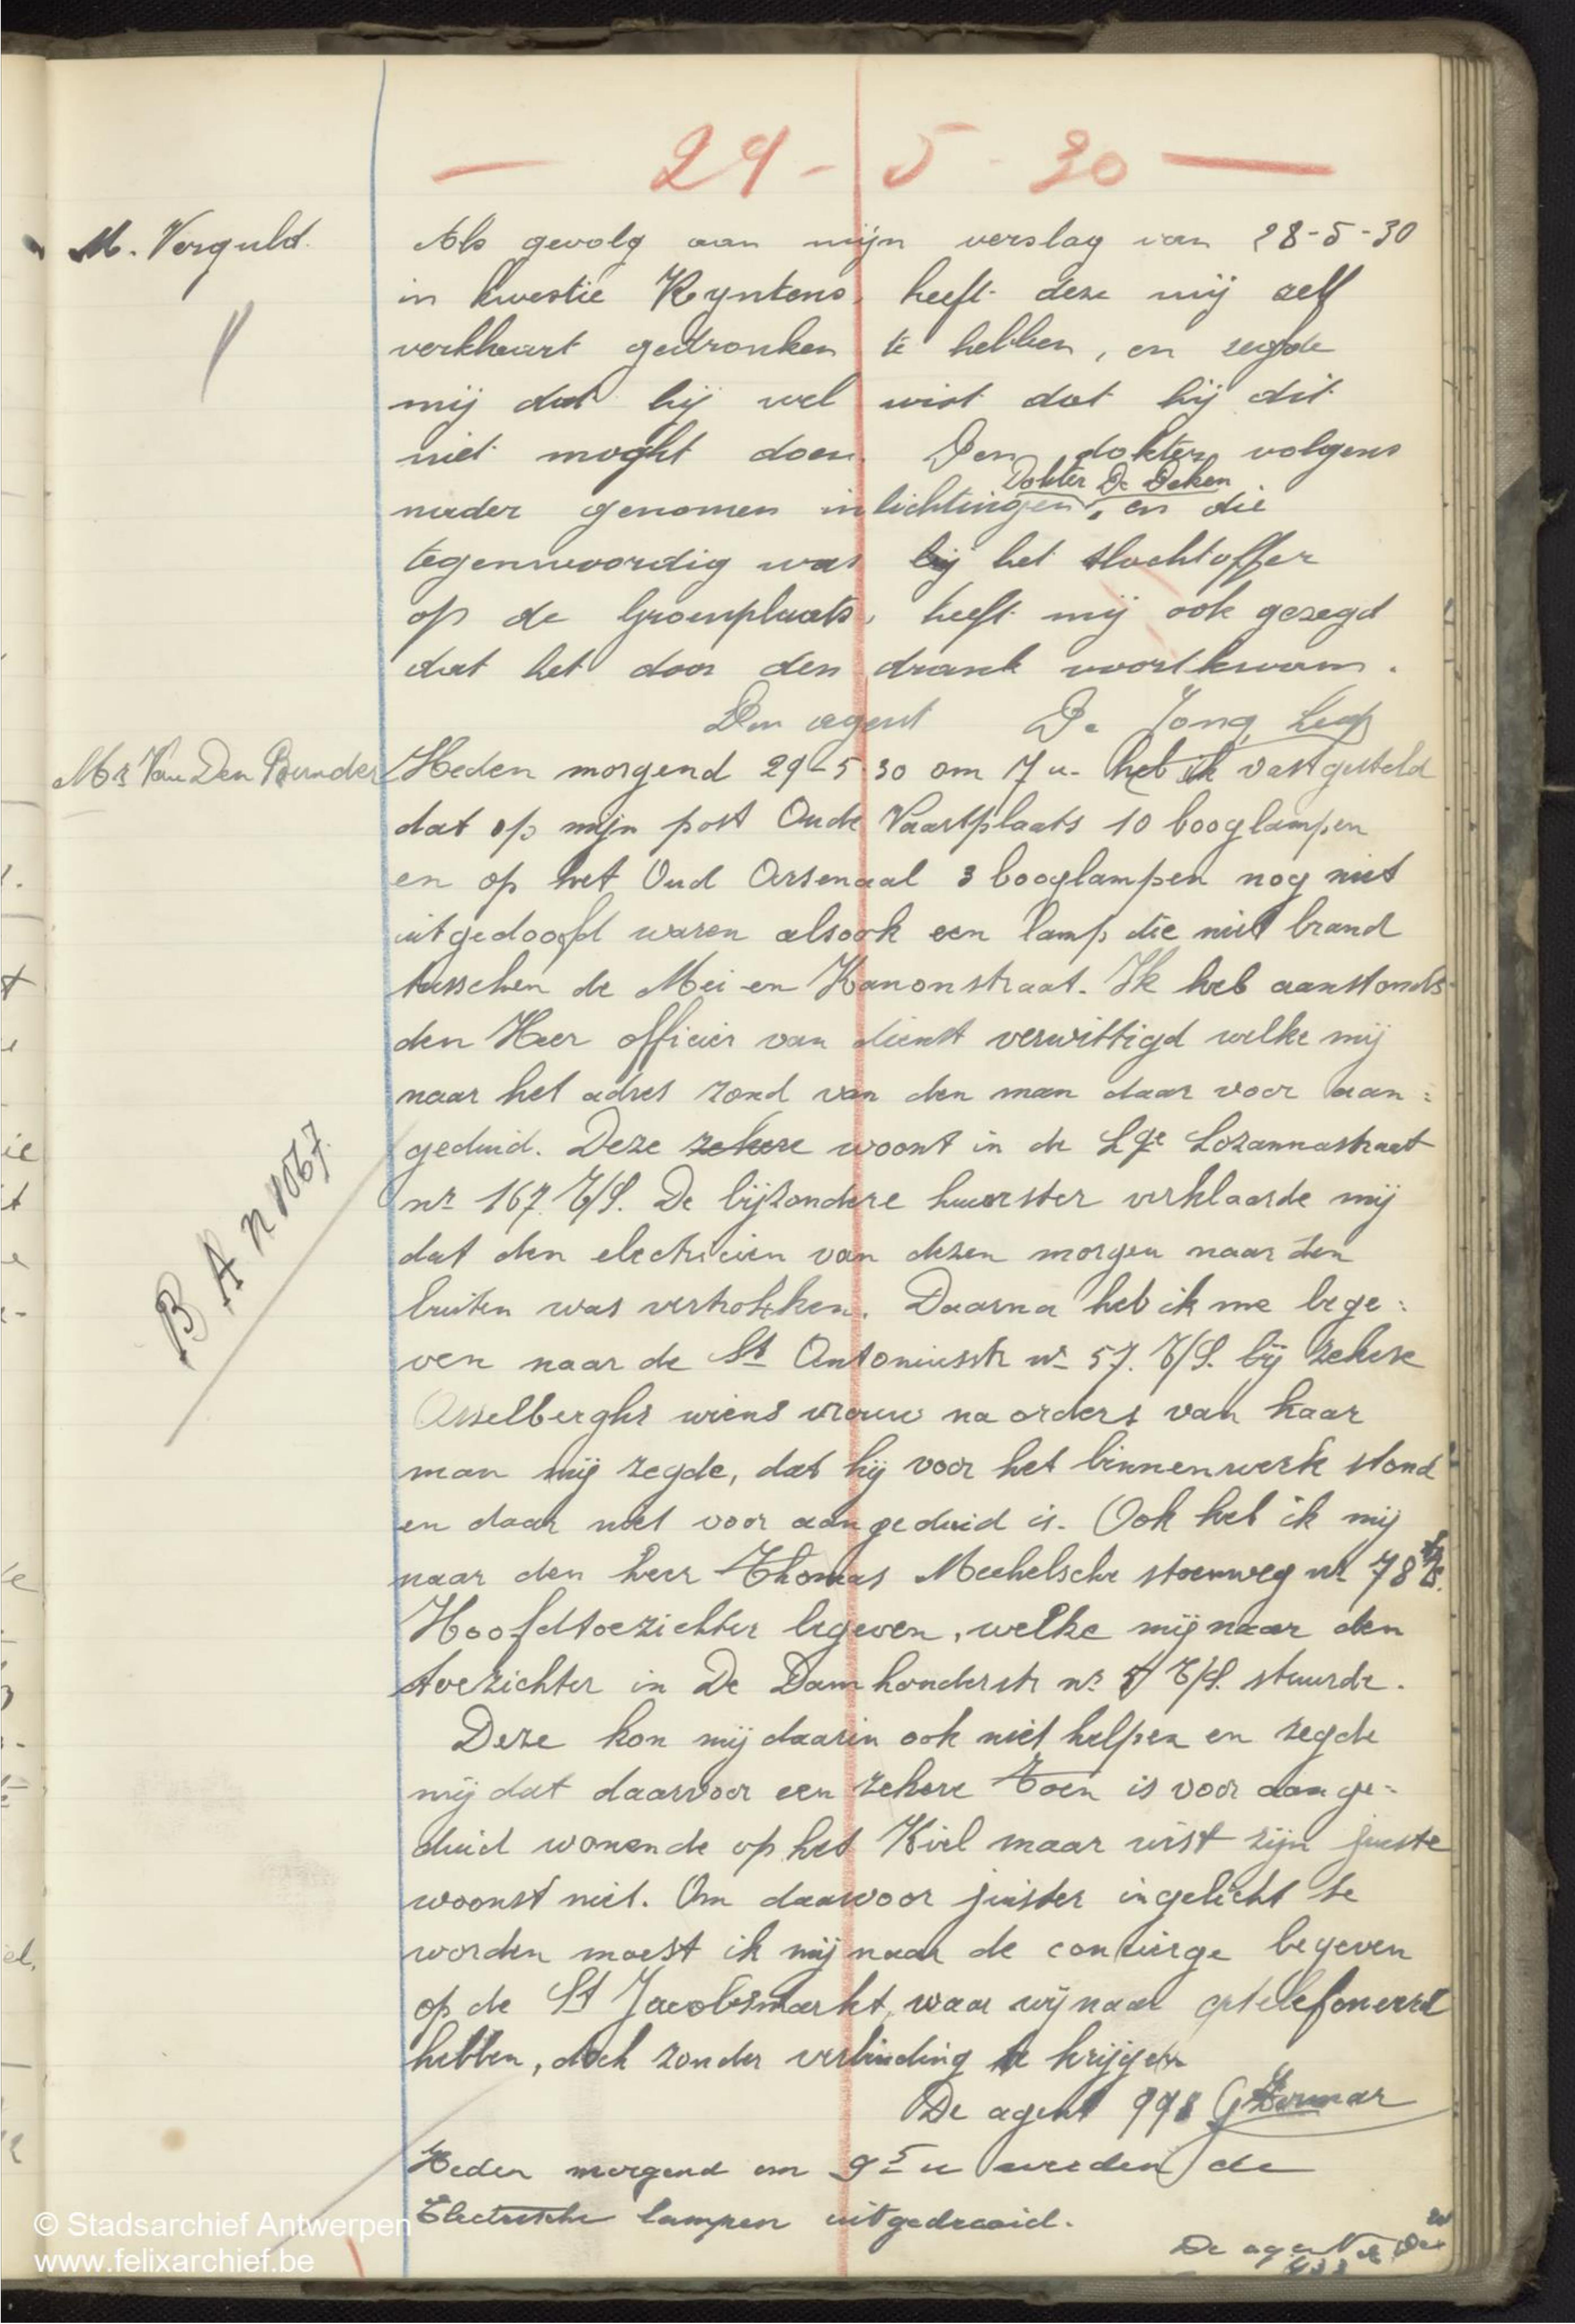 — 29 - 5 - 30 —
M. Verguld.
Als gevolg aan mijn verslag van 28-5-30
in kwestie Ryntens, heeft deze mij zelf
verkheart gedronken te hebben, en zegde
mij dat hij wel wist dat hij dit
niet moght doen. Den dokter volgens
Dokter De Deken
nader genomen inlichtingen, en die
tegenwoordig was bij het slachtoffer
op de Groenplaats, heeft mij ook gezegd
dat het door den drank voortkwam.
Den agent De Jong
Mr Van Den Bunder
Heden morgend 29-5-30 om 7 u. heb ik vastgesteld
dat op mijn post Oude Vaartplaats 10 booglampen
en op het Oud Arsenaal 3 booglampen nog niet
uitgedoofd waren alsook een lamp die niet brand
tusschen de Mei en Kanonstraat. Ik heb aanstonds
den Heer officier van dienst verwittigd welke mij
naar het adres zond van den man daar voor aan=
geduid. Deze zekere woont in de Lge Lozannastraat
nr 167. T/S. De bijzondere huurster verklaarde mij
dat den electricien van dezen morgen naar den
buiten was vertrokken. Daarna heb ik me bege=
ven naar de St Antoniusstr nr 57. T/S. bij zekere
Asselberghs wiens vrouw na orders van haar
man mij zegde, dat hij voor het binnenwerk stond
en daar niet voor aangeduid is. Ook heb ik mij
naar den heer Thomas Mechelsche steenweg nr 78 T/S.
Hoofdtoezichter begeven, welke mij naar den
toezichter in De Damhouderstr nr T/S. stuurde.
Deze kon mij daarin ook niet helpen en zegde
mij dat daarvoor een zekere Toen is voor aange=
duid wonende op het Kiel maar wist zijn juiste
woonst niet. Om daarvoor juister ingelicht te
worden moest ik mij naar de concierge begeven
op de St Jacobsmarkt, waar wij naar getelefoneerd
hebben, doch zonder verbinding te krijgen
De agent 998 G
Heden morgend om 9 5 u werden de
Electrische lampen uitgedraaid.
De agent
B A n 1067.
© Stadsarchief Antwerpen
www.felixarchief.be